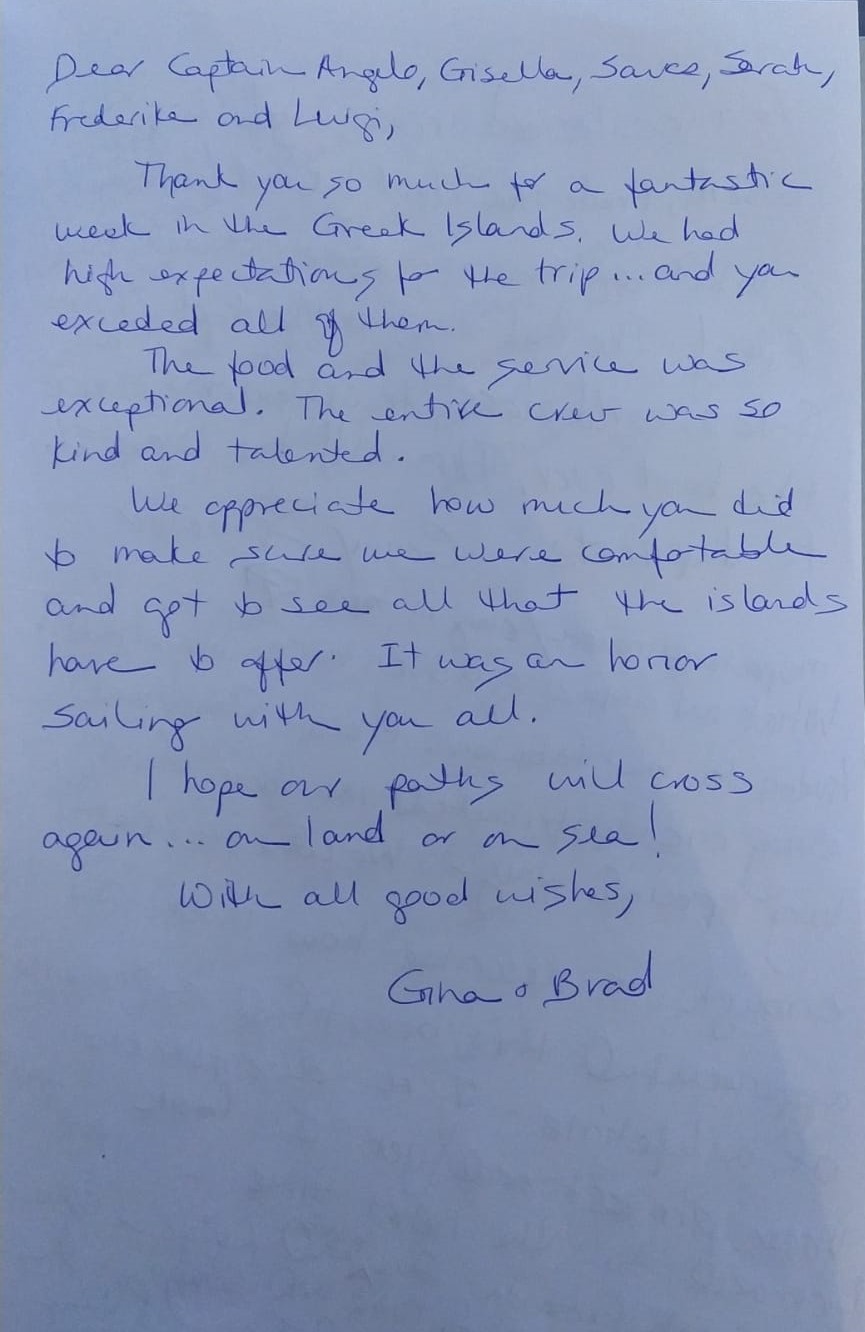 Dear Captain Angelo, Gisella, Sarah,
Frederike and Luigi,
Thank you so much for a fantastic
week in the Greek Islands. We had
high expectations for the trip... and you
exceded all of them.
The food and the service was
exceptional. The entire crew was so
kind and talented.
We appreciate how much you did
to make sure we were comfortable
and got to see all that the islands
have to offer. It was an honor
sailing with you all.
I hope our paths will cross
again... on land or on sea!
With all good wishes,
Gina & Brad